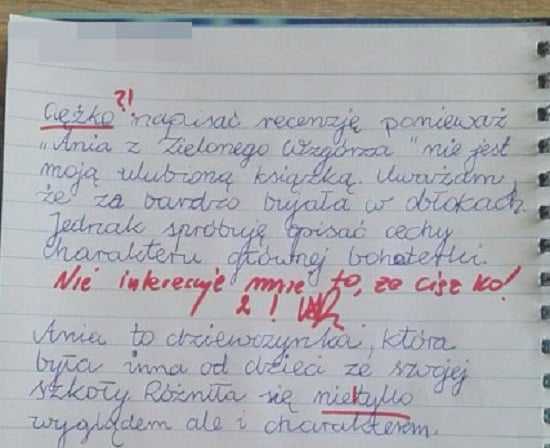 ?!
Ciężko napisać recenzję ponieważ
„Ania z Zielonego Wzgórza" nie jest
moją ulubioną książką. Uważam,
że za bardzo bujała w obłokach.
Jednak spróbuję opisać cechy
charakteru głównej bohaterki.
Nie interesuje mnie to, że cięż ko!
2!
Ania to dziewczynka, która
była inna od dzieci ze swojej
szkoły. Różniła się nie|tylko
wyglądem ale i charakterem.